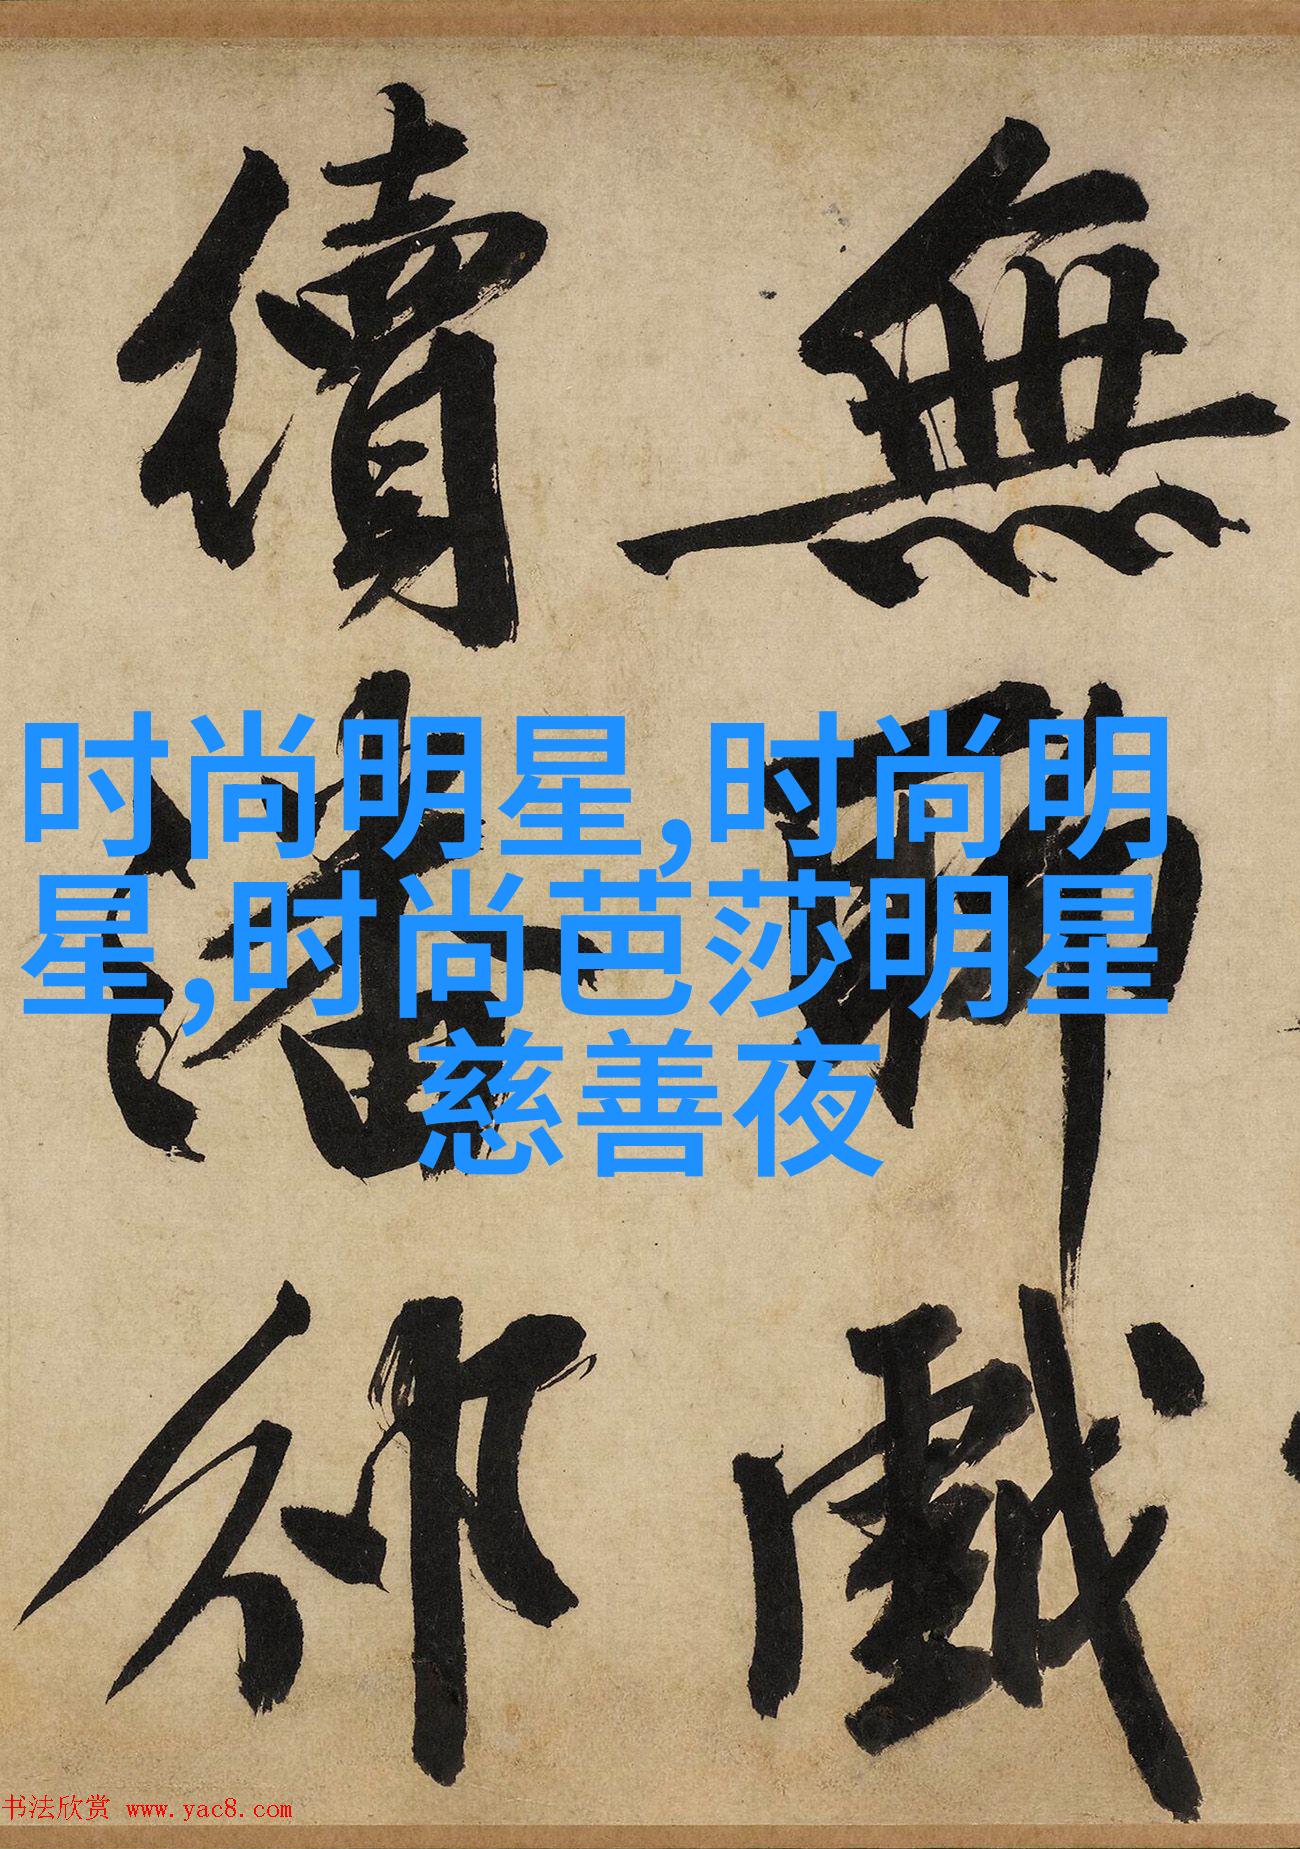 無聊戲
續潘邠
时尚明星,时尚明
星,时尚芭莎明星
慈善夜
书法欣赏 www.yac8.com